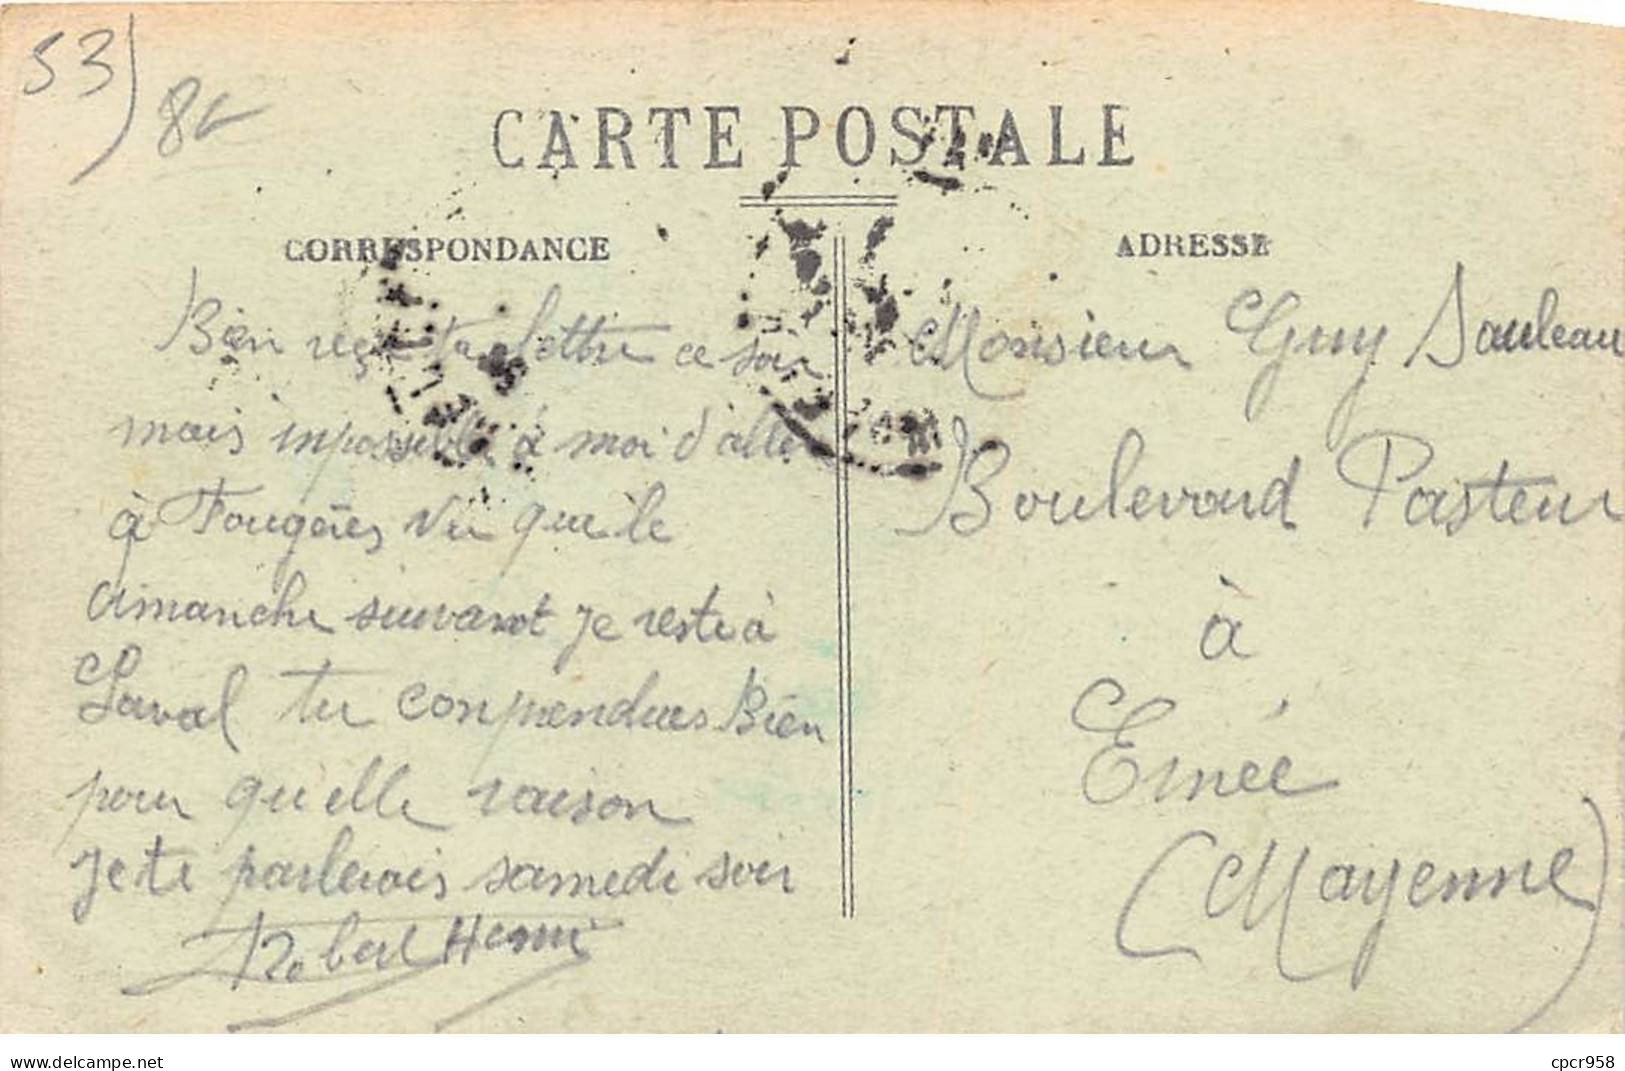 53)
8€
CARTE POSTALE
CORRESPONDANCE
Bien reçu ta lettre ce soir
mais impossible à moi d'aller
à Fougères vu que le
dimanche suivant je reste à
Laval tu comprendras Bien
pour qu'elle raison
je te parlerais samedi soir
Robert Henri
ADRESSE
Monsieur Guy Sauleau
Boulevard Pasteur
à
Ernée
(Mayenne)
www.delcampe.net
cpcr958